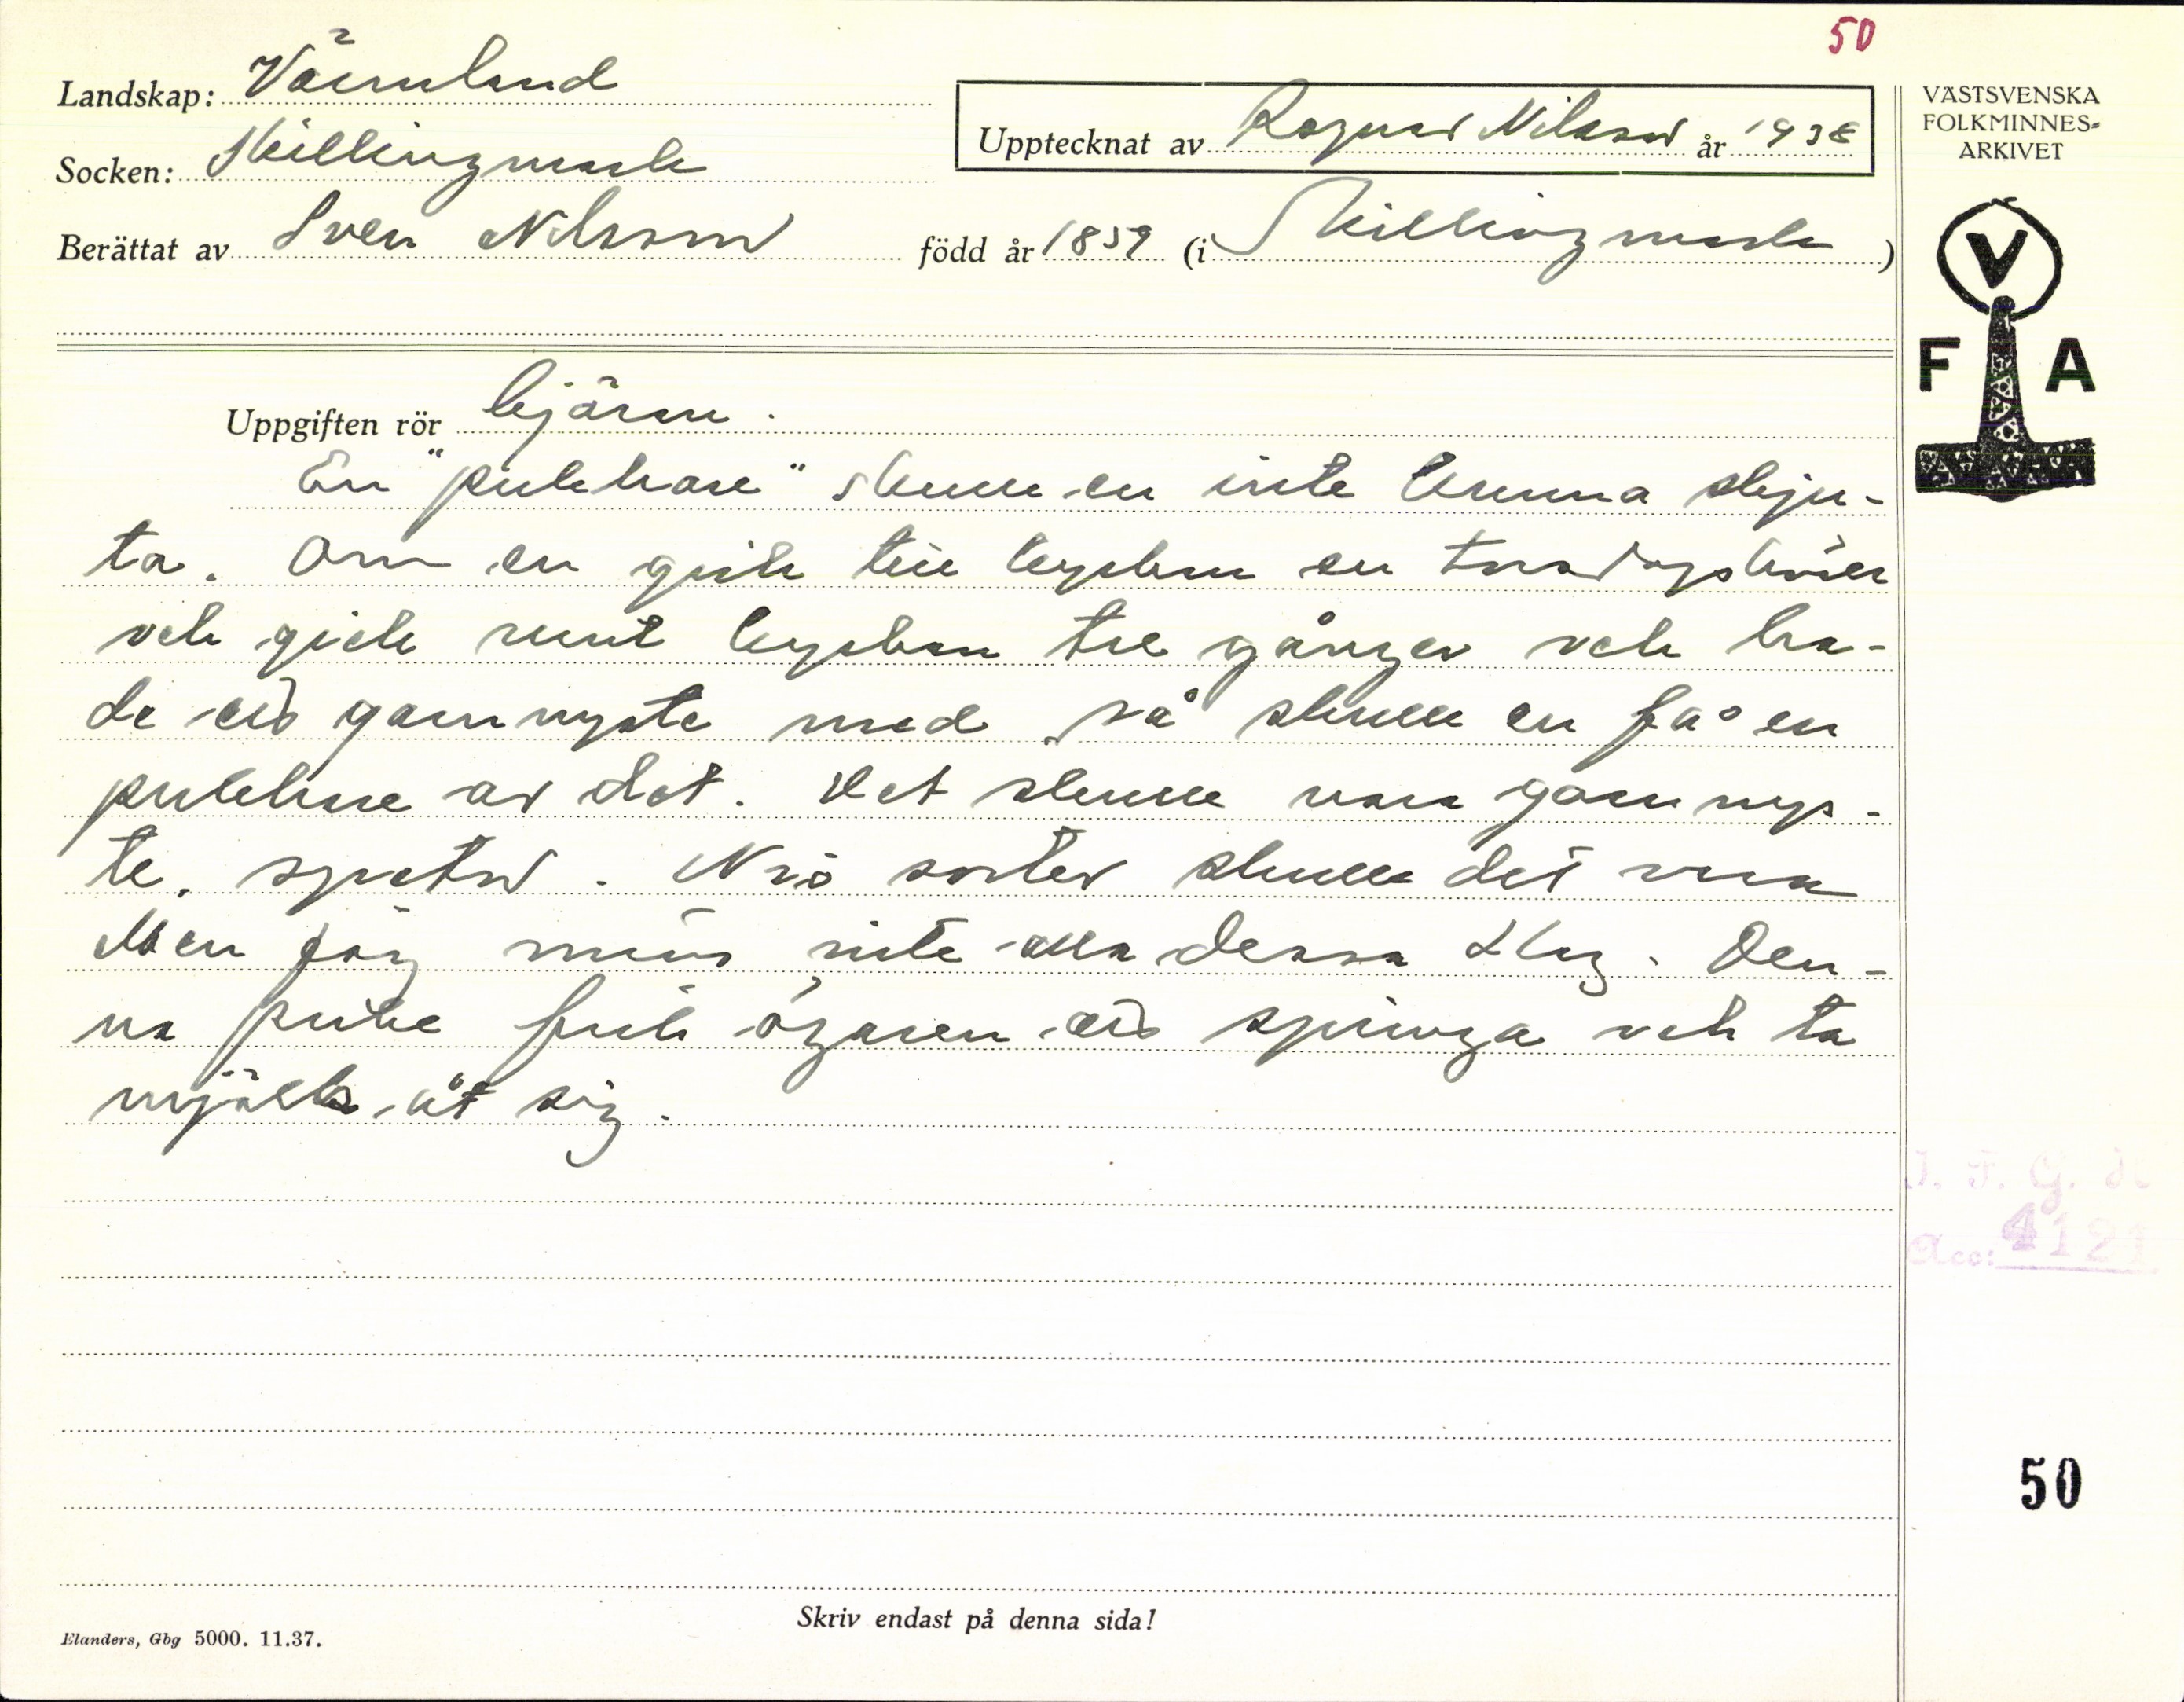 50
Landskap: Värmland
Socken: Skillingmark
Upptecknat av Ragnar Nilsson år 1938
Berättat av Sven Nilsson född år 1859 (i Skillingmark)
VÄSTSVENSKA
FOLKMINNES-
ARKIVET
V
F A
Uppgiften rör bjäran.
En "pukhare" skulle en inte kunna skju-
ta. Om en gick till kyrkan en torsdagskväll
och gick runt kyrkan tre gånger och ha-
de ett garnnyste med så skulle en få en
pukhare av det. Det skulle vara garnnys-
te, spetor. Nio sorter skulle det vara
Men jag minns inte alla dessa slag. Den-
na fick ägaren att springa och ta
mjölk åt sig.
Acc: 4121
50
Skriv endast på denna sida!
Elanders, Gbg 5000. 11.37.